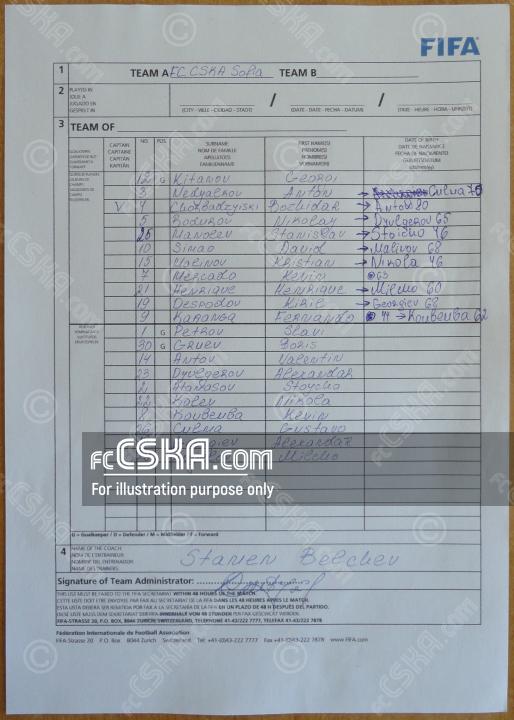 FIFA
1 TEAM A FC CSKA Sofia TEAM B
2 PLAYED IN
JOUE A
JUGADO EN
GESPIELT IN
(CITY - VILLE - CIUDAD - STADT) / (DATE - DATE - FECHA - DATUM) / (TIME - HEURE - HORA - UHRZEIT)
3 TEAM OF
CAPTAIN CAPITAINE CAPITÁN KAPITÄN NO. POS. SURNAME NOM DE FAMILLE APELLIDO(S) FAMILIENNAME FIRST NAME(S) PRÉNOM(S) NOMBRE(S) VORNAME(N) DATE OF BIRTH DATE DE NAISSANCE FECHA DE NACIMIENTO GEBURTSDATUM
12 G Kitanov Georgi
3 Nedyalkov Anton → Culma 75
V 4 Chorbadzyiski Bozhidar → Antov 80
5 Bodurov Nikolay → Dyulgerov 65
25 Manolev Stanislav → Stoicho 46
10 Simao David → Malinov 68
15 Kristian → Nikola 46
7 Mercado Kevin 63
21 Henrique Henrique → Milcho 60
19 Despodov Kiril → Georgiev 68
9 Karanga Fernando 44 → Koubemba 62
1 G Petrov Slavi
30 G Gruev Boris
14 Antov Valentin
23 Dyulgerov Alexandar
2 Atanasov Stoycho
22 Kolev Nikola
8 Koubemba Kevin
26 Culma Gustavo
Alexandar
Milcho
fcCSKA.com
For illustration purpose only
G = Goalkeeper / D = Defender / M = Midfielder / F = Forward
4 NAME OF THE COACH
NOM DE L'ENTRAINEUR
NOMBRE DEL ENTRENADOR
NAME DES TRAINERS
Stamen Belchev
Signature of Team Administrator:
THIS LIST MUST BE FAXED TO THE FIFA SECRETARIAT WITHIN 48 HOURS OF THE MATCH.
CETTE LISTE DOIT ETRE ENVOYEE PAR FAX AU SECRETARIAT DE LA FIFA DANS LES 48 HEURES APRES LE MATCH.
ESTA LISTA DEBERA SER REMITIDA POR FAX A LA SECRETARIA DE LA FIFA EN UN PLAZO DE 48 H DESPUES DEL PARTIDO.
DIESE LISTE MUSS DEM SEKRETARIAT DER FIFA INNERHALB VON 48 STUNDEN PER FAX GESCHICKT WERDEN:
FIFA-STRASSE 20, P.O. BOX, 8044 ZURICH SWITZERLAND, TELEPHONE 41-43/222 7777, TELEFAX 41-43/222 7878
Fédération Internationale de Football Association
FIFA-Strasse 20 P.O. Box 8044 Zurich Switzerland Tel: +41-(0)43-222 7777 Fax +41-(0)43-222 7878 www.FIFA.com